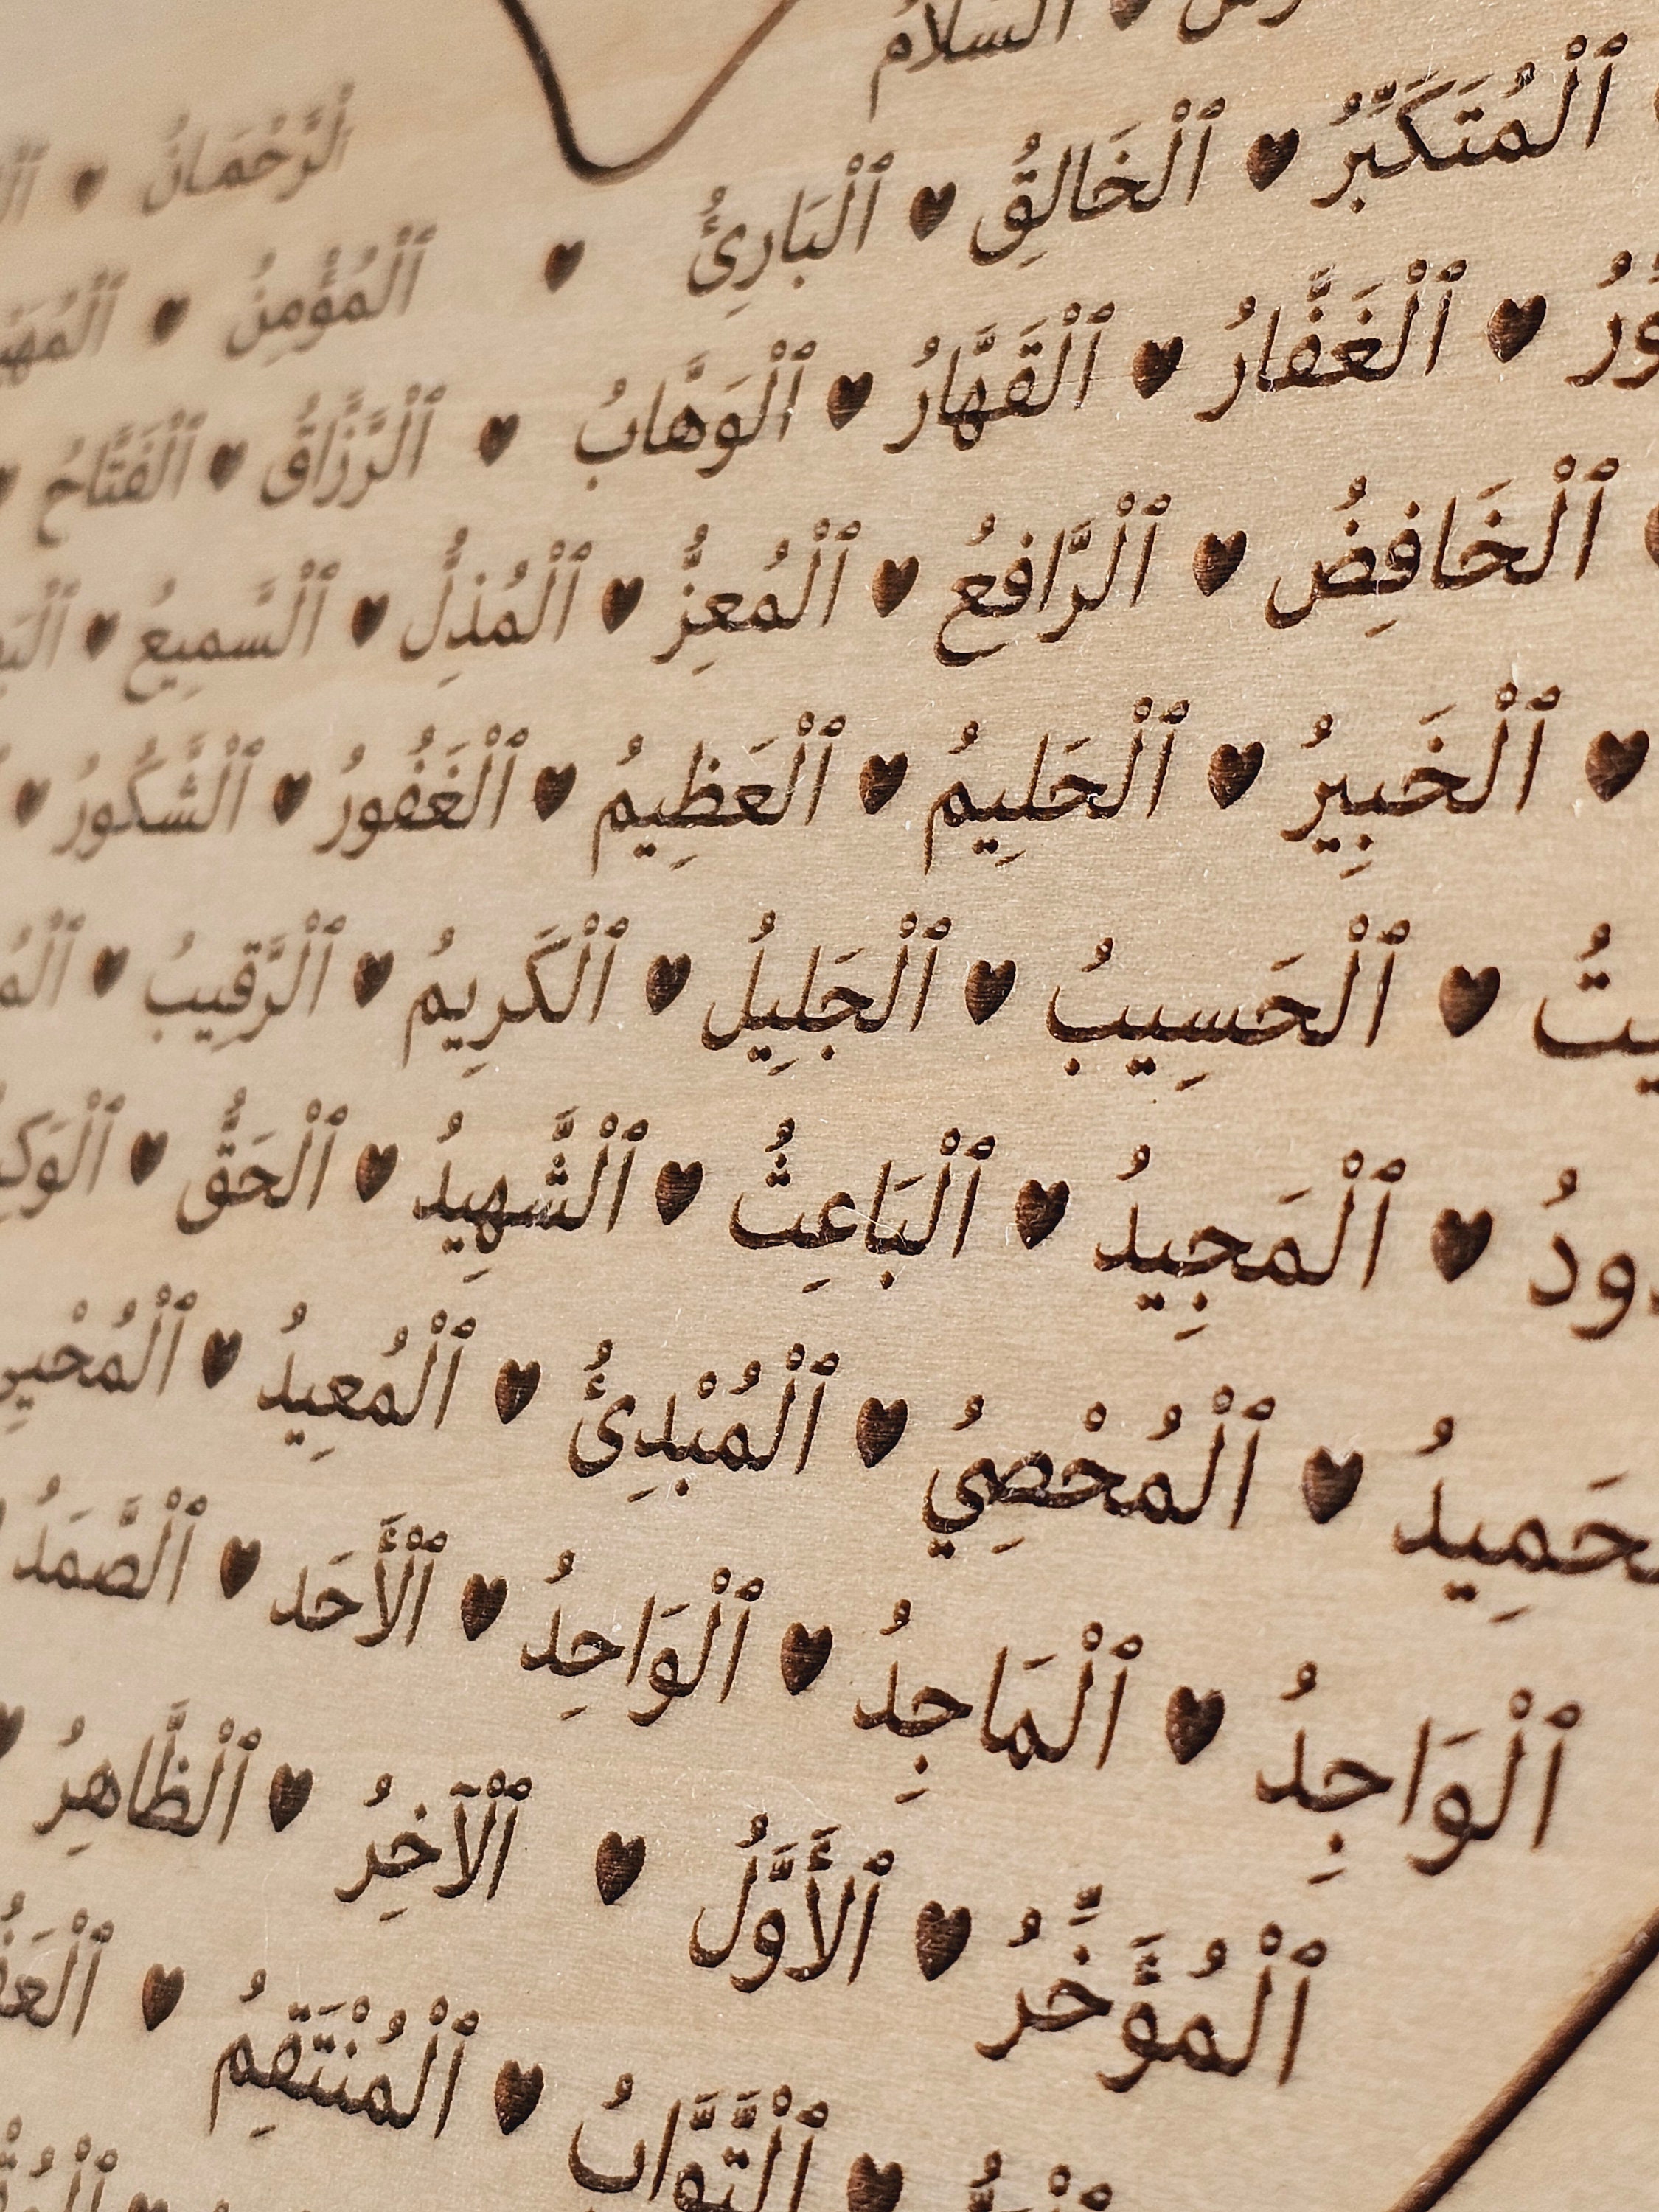 ٱلْرَّحْمَانُ
ٱلْسَّلَامُ ♥
ٱلْمُتَكَبِّرُ ♥ ٱلْخَالِقُ ♥ ٱلْبَارِئُ ♥ ٱلْمُؤْمِنُ ♥
ٱلْغَفَّارُ ♥ ٱلْقَهَّارُ ♥ ٱلْوَهَّابُ ♥ ٱلْرَّزَّاقُ ♥ ٱلْفَتَّاحُ ♥
ٱلْخَافِضُ ♥ ٱلْرَّافِعُ ♥ ٱلْمُعِزُّ ♥ ٱلْمُذِلُّ ♥ ٱلْسَّمِيعُ ♥
♥ ٱلْخَبِيرُ ♥ ٱلْحَلِيمُ ♥ ٱلْعَظِيمُ ♥ ٱلْغَفُورُ ♥ ٱلْشَّكُورُ ♥
♥ ٱلْحَسِيبُ ♥ ٱلْجَلِيلُ ♥ ٱلْكَرِيمُ ♥ ٱلْرَّقِيبُ ♥
♥ ٱلْمَجِيدُ ♥ ٱلْبَاعِثُ ♥ ٱلْشَّهِيدُ ♥ ٱلْحَقُّ ♥
حَمِيدُ ♥ ٱلْمُحْصِيُ ♥ ٱلْمُبْدِئُ ♥ ٱلْمُعِيدُ ♥ ٱلْمُحْيِي
ٱلْوَاجِدُ ♥ ٱلْمَاجِدُ ♥ ٱلْوَاحِدُ ♥ ٱلْأَحَد ♥ ٱلْصَّمَدُ
ٱلْمُؤَخِّرُ ♥ ٱلأَوَّلُ ♥ ٱلْآخِرُ ♥ ٱلْظَّاهِرُ ♥
ٱلْتَّوَّابُ ♥ ٱلْمُنْتَقِمُ ♥